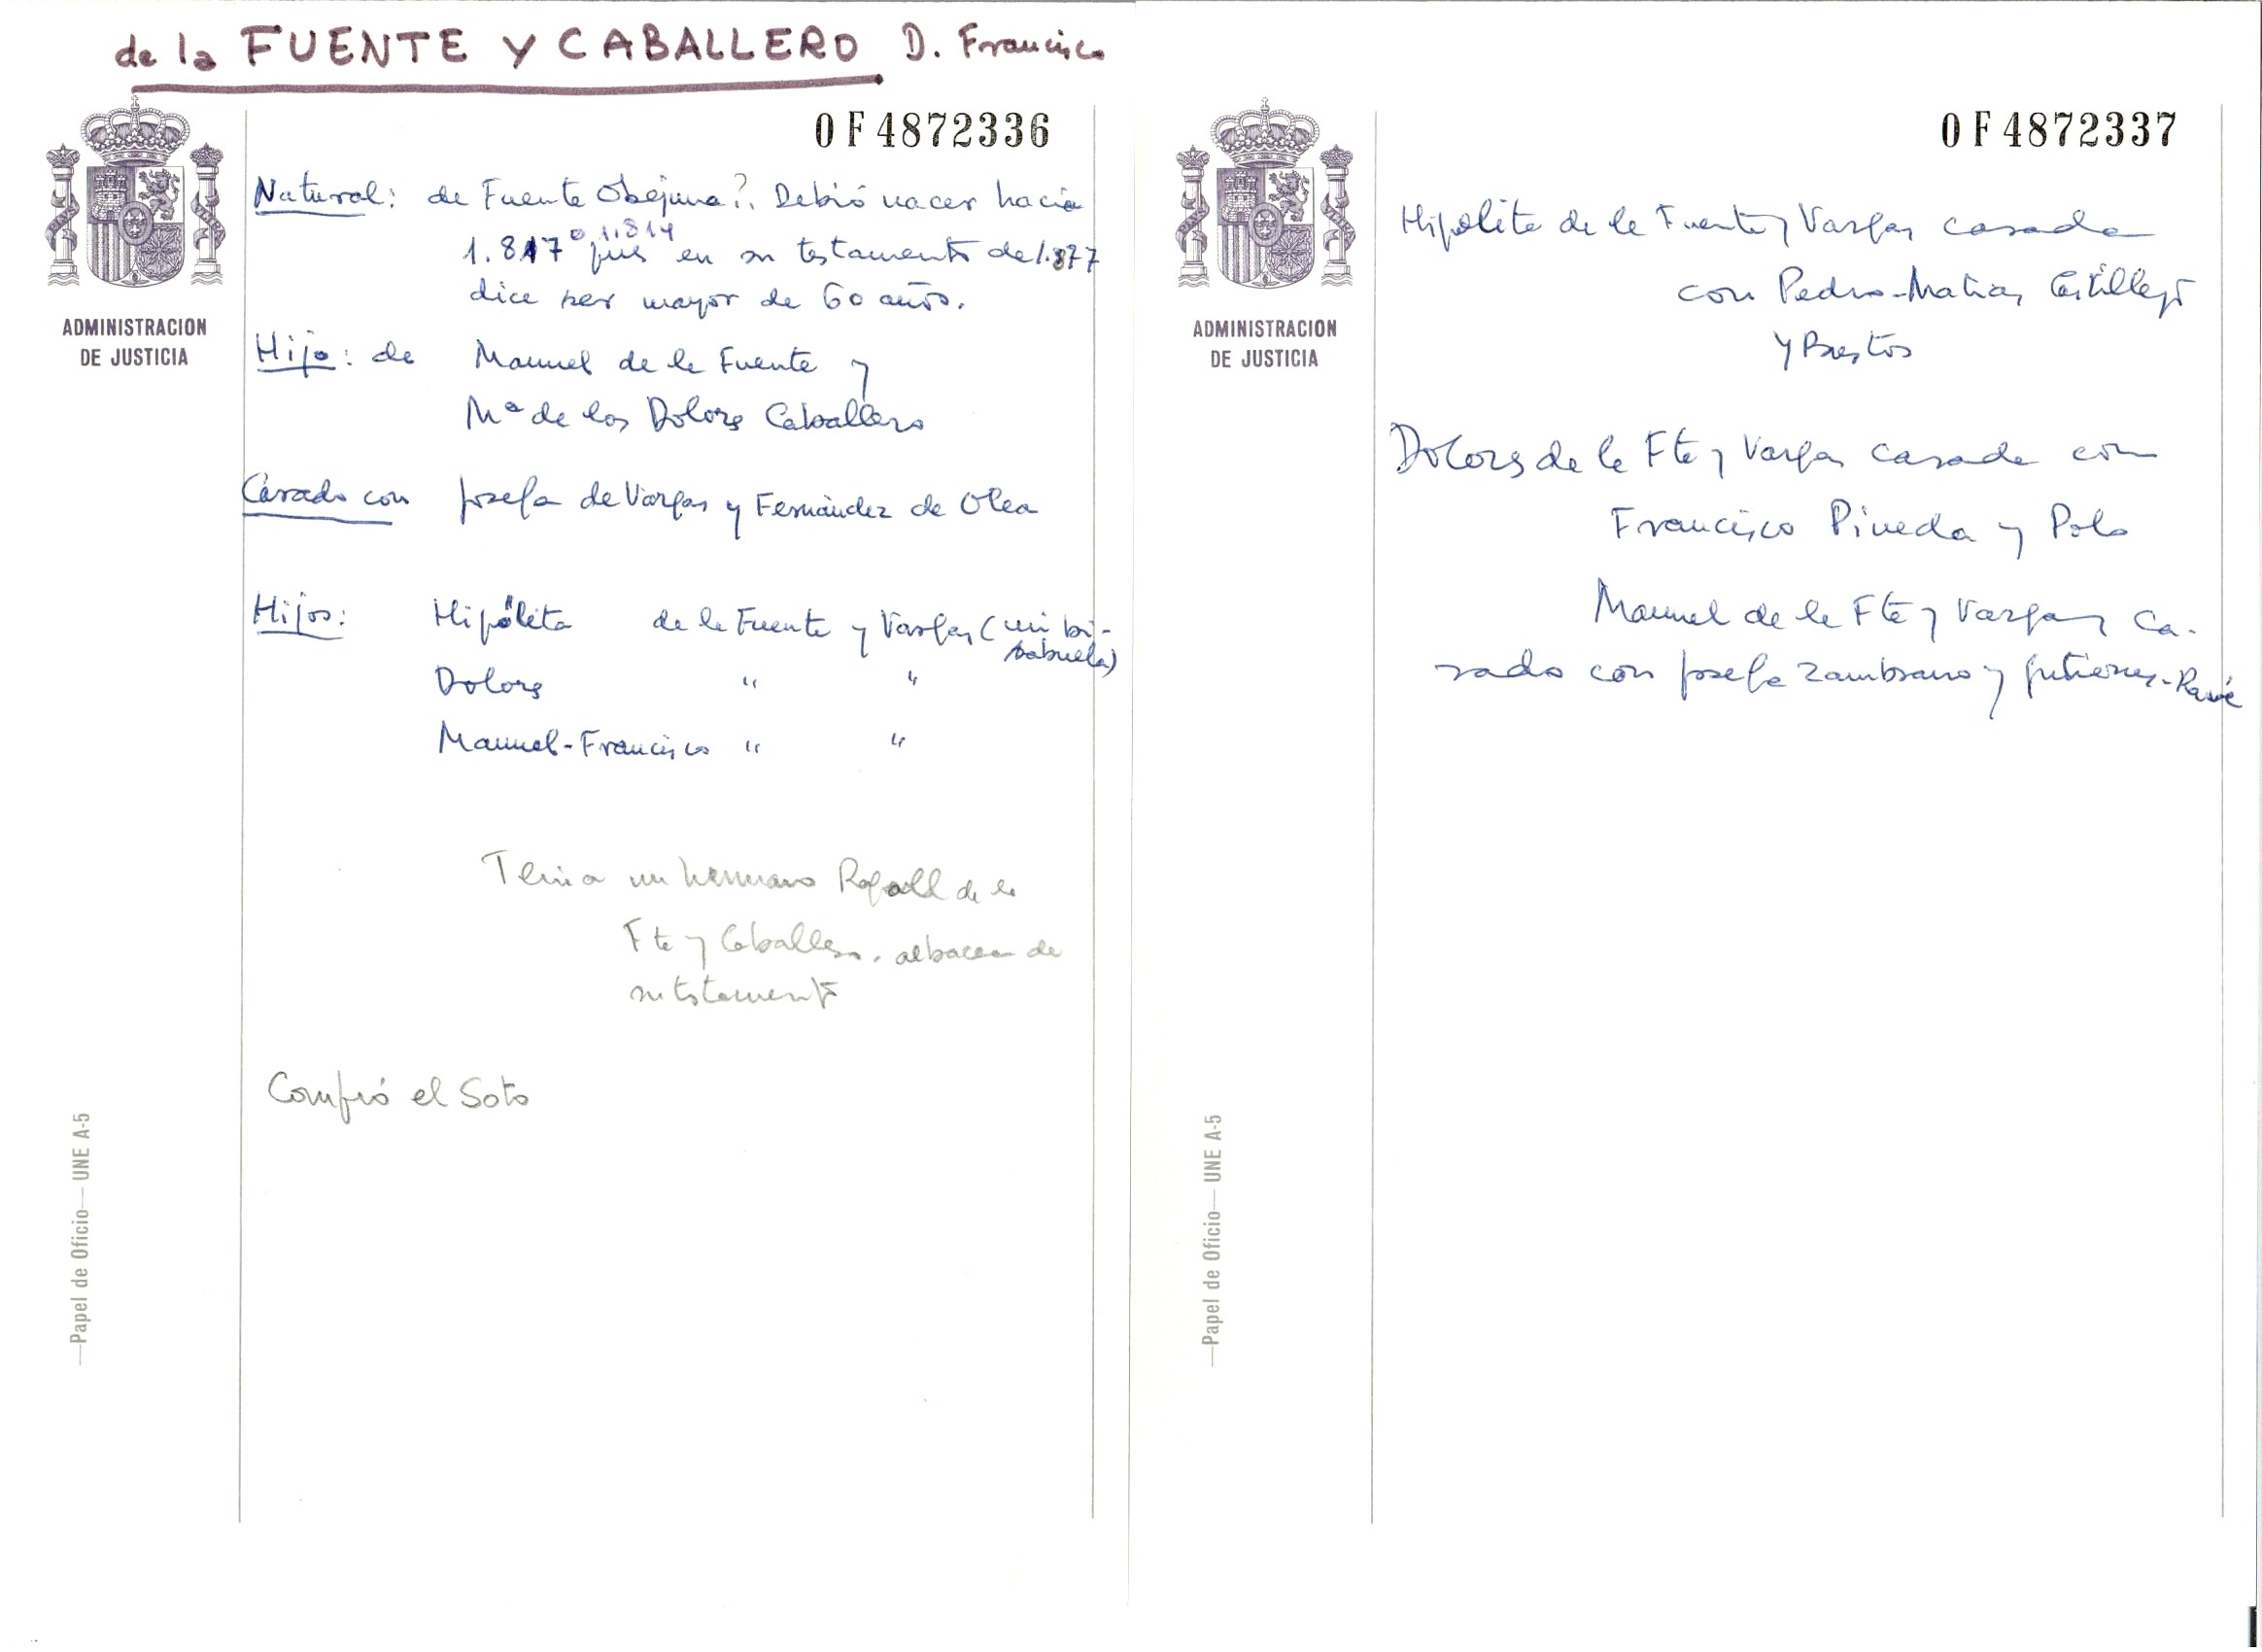 de la FUENTE Y CABALLERO D. Francisco
0F4872336
ADMINISTRACION
DE JUSTICIA
Natural: de Fuente Obejuna?. Debió nacer hacia
o 1.814
1.817 pues en su testamento de 1.877
dice ser mayor de 60 años.
Hijo: de Manuel de la Fuente y
Mª de los Dolores Caballero
Casado con Josefa de Vargas y Fernández de Olea
Hijos: Hipólita de la Fuente y Vargas (mi bi-
sabuela)
Dolores " "
Manuel-Francisco " "
Tenia un hermano Rafael de la
Fte y Caballero, albacea de
su testamento
Compró el Soto
—Papel de Oficio— UNE A-5
0F4872337
ADMINISTRACION
DE JUSTICIA
Hipólita de la Fuente y Vargas casada
con Pedro-Matias Castillejo
y Bustos
Dolores de la Fte y Vargas casada con
Francisco Pineda y Polo
Manuel de la Fte y Vargas ca-
sado con Josefa Zambrano y Gutierrez-Ravé
—Papel de Oficio— UNE A-5